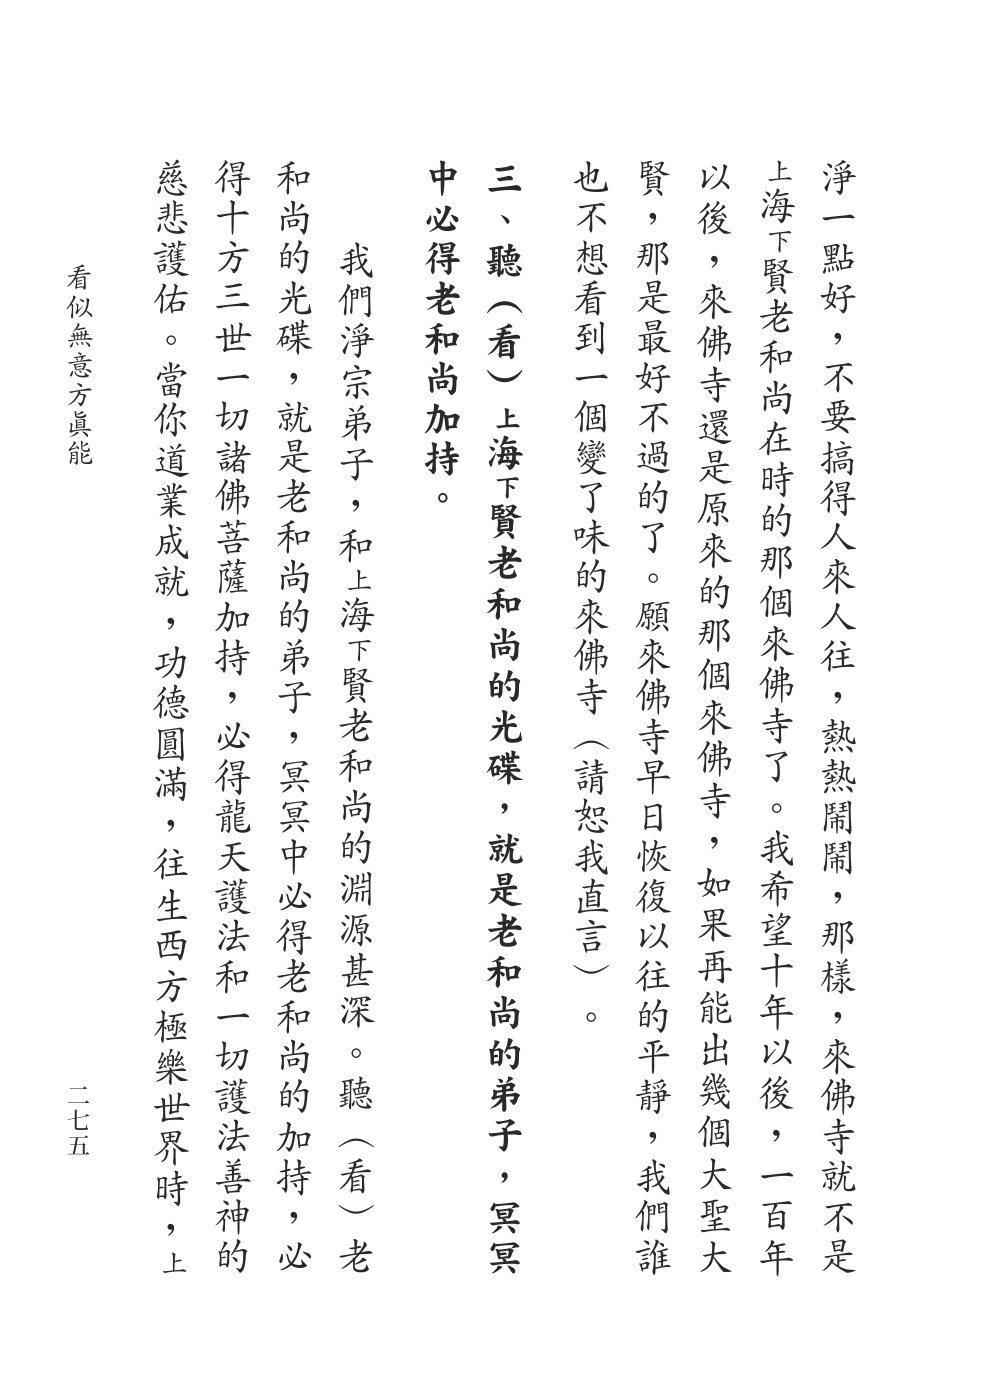 淨一點好，不要搞得人來人往，熱熱鬧鬧，那樣，來佛寺就不是
上海下賢老和尚在時的那個來佛寺了。我希望十年以後，一百年
以後，來佛寺還是原來的那個來佛寺，如果再能出幾個大聖大
賢，那是最好不過的了。願來佛寺早日恢復以往的平靜，我們誰
也不想看到一個變了味的來佛寺（請恕我直言）。
三、聽（看）上海下賢老和尚的光碟，就是老和尚的弟子，冥冥
中必得老和尚加持。
我們淨宗弟子，和上海下賢老和尚的淵源甚深。聽（看）老
和尚的光碟，就是老和尚的弟子，冥冥中必得老和尚的加持，必
得十方三世一切諸佛菩薩加持，必得龍天護法和一切護法善神的
慈悲護佑。當你道業成就，功德圓滿，往生西方極樂世界時，上
看似無意方眞能
二七五